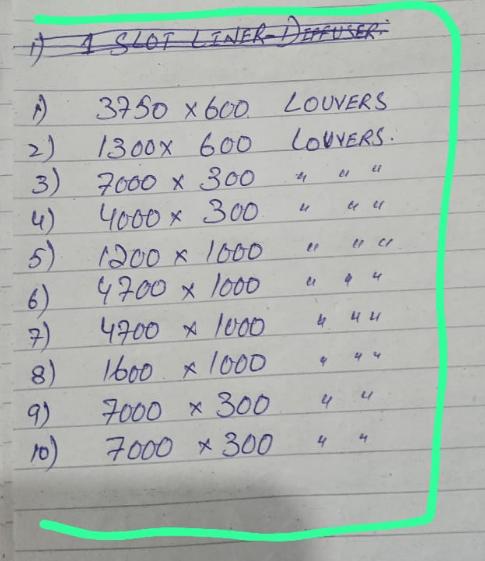 1) 1 SLOT LINER-DIFFUSER.
1) 3750 × 600 LOUVERS
2) 1300 × 600 LOUVERS.
3) 7000 × 300 " " "
4) 4000 × 300 " " "
5) 1200 × 1000 " " "
6) 4700 × 1000 " " "
7) 4700 × 1000 " " "
8) 1600 × 1000 " " "
9) 7000 × 300 " "
10) 7000 × 300 " "